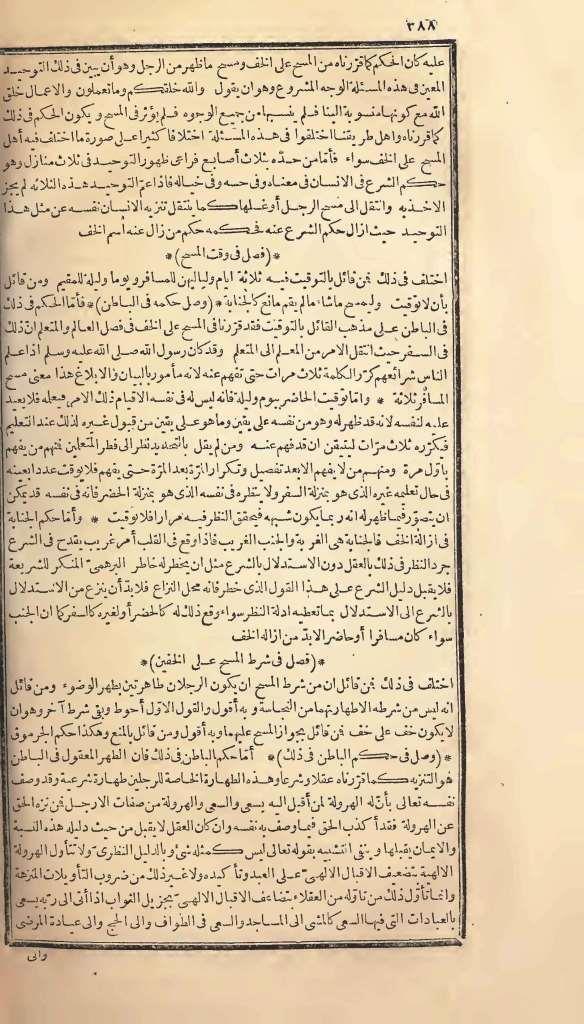 ٣٨٨
عليه كان الحكم كما قررناه من المسح على الخف ومسح ما ظهر من الرجل وهو أن يبين فى ذلك التوحيد
المعين فى هذه المسئلة الوجه المشروع وهو ان يقول والله خلقكم وما تعملون والاعمال خلق
الله مع كونها منسوبة الينا فلم ينسبها من جميع الوجوه فلم يؤثر فى المسح ويكون الحكم فى ذلك
كما قررناه واهل طريقتنا اختلفوا فى هذه المسئلة اختلافا كثيرا على صورة ما اختلف فيه أهل
المسح على الخف سواء فأما من حده بثلاث أصابع فراعى ظهور التوحيد فى ثلاث منازل وهو
حكم الشرع فى الانسان فى معناه وفى حسه وفى خياله فاذا عم التوحيد هذه الثلاثة لم يجز
الاخذ به وانتقل الى مسح الرجل أو غسلها كما ينتقل تنزيه الانسان نفسه عن مثل هذا
التوحيد حيث ازال حكم الشرع عنه فحكمه حكم من زال عنه اسم الخف
*(فصل فى وقت المسح)*
اختلف فى ذلك فمن قائل بالتوقيت فيه ثلاثة ايام ولياليهن للمسافر ويوما وليلة للمقيم ومن قائل
بأن لا توقيت وليمسح ماشاء مالم يقم مانع كالجنابة *(وصل حكمه فى الباطن)* فأما الحكم فى ذلك
فى الباطن على مذهب القائل بالتوقيت فقد قررنا فى المسح على الخف فى فصل العالم والمتعلم ان ذلك
فى السفر حيث انتقل الامر من المعلم الى المتعلم وقد كان رسول الله صلى الله عليه وسلم اذا علم
الناس شرائعهم كرر الكلمة ثلاث مرات حتى تفهم عنه لانه مأمور بالبيان والابلاغ هذا معنى مسح
المسافر ثلاثة * وأما توقيت الحاضر بيوم وليلة فانه ليس له فى نفسه الاقيام ذلك الامر فيعمله فلا يعيد
عليه لنفسه لانه قد ظهر له وهو من نفسه على يقين وما هو على يقين من قبول غيره لذلك عند التعليم
فيكرره ثلاث مرات ليتيقن ان قد فهم عنه ومن لم يقل بالتحديد نظر الى فطر المتعلمين فمنهم من يفهم
بأول مرة ومنهم من لا يفهم الا بعد تفصيل وتكرار المرة بعد المرة حتى يفهم فلا يوقت عددا بعينه
فى حال تعليمه غيره الذى هو بمنزلة السفر ولا ينظره فى نفسه الذى هو بمنزلة الحضر فانه فى نفسه قد يمكن
ان يتصور فيما ظهر له انه ربما يكون شبهه فيحقق النظر فيه مرارا فلا توقيت * وأما حكم الجنابة
فى ازالة الخف فالجنابة هى الغربة والجنب الغريب فاذا وقع فى القلب أمر غريب يقدح فى الشرع
جرد النظر فى ذلك بالعقل دون الاستدلال بالشرع مثل ان يخطر له خاطر البرهمى المنكر للشريعة
فلا يقبل دليل الشرع على هذا القول الذى خطر فانه محل النزاع فلا بد أن ينزع من الاستدلال
بالشرع الى الاستدلال بما تعطيه ادلة النظر سواء وقع ذلك له كالحضر أو لغيره كالسفر كما ان الجنب
سواء كان مسافرا أو حاضرا لابد من ازالة الخف
*(فصل فى شرط المسح على الخفين)*
اختلف فى ذلك فمن قائل ان من شرط المسح ان يكون الرجلان طاهرتين بطهر الوضوء ومن قائل
انه ليس من شرطه الا طهارتهما من النجاسة وبه أقول والقول الاول أحوط وبقى شرط آخر وهو ان
لا يكون خف على خف فمن قائل بجواز المسح عليهما وبه أقول ومن قائل بالمنع وهكذا حكم الجرموق
*(وصل فى حكم الباطن فى ذلك)* أما حكم الباطن فى ذلك فان الطهر المعقول فى الباطن
هو التنزيه كما قررناه عقلا وشرعا وهذه الطهارة الخاصة للرجلين طهارة شرعية وقد وصف
نفسه تعالى بأن له الهرولة لمن أقبل اليه يسعى والسعى والهرولة من صفات الارجل فمن نزه الحق
عن الهرولة فقد أكذب الحق فيما وصف به نفسه وان كان العقل لا يقبل من حيث دليله هذه النسبة
والايمان يقبلها وينفى التشبيه بقوله تعالى ليس كمثله شئ وبالدليل النظرى ولا تتأول الهرولة
الالهية بتضعيف الاقبال الالهى على العبد وتأكيده ولا غير ذلك من ضروب التأويلات المنزهة
وانما تأول ذلك من تأوله من العقلاء بتضاعف الاقبال الالهى بجزيل الثواب اذا أتى الى ربه يسعى
بالعبادات التى فيها السعى كالمشى الى المساجد والسعى فى الطواف والى الحج والى عيادة المرضى
والى